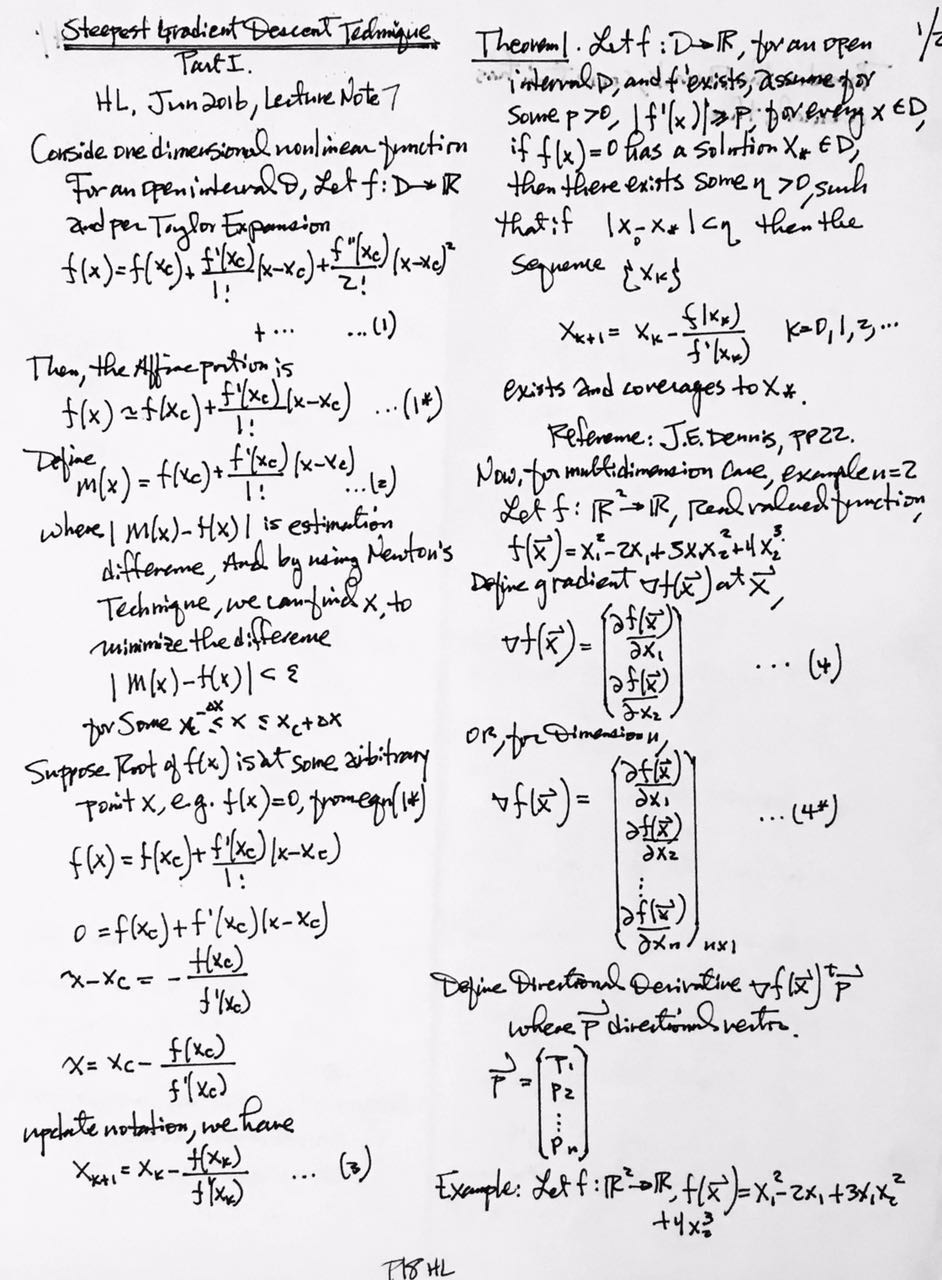 Steepest Gradient Descent Technique
Part I.
HL, Jun 2016, Lecture Note 7
Conside one dimensional nonlinear function
For an open interval D, Let f: D→ℝ
and per Taylor Expansion
f(x)=f(xc)+ f'(xc)/1! (x-xc)+ f''(xc)/2! (x-xc)²
+ ... ...(1)
Then, the Affine portion is
f(x) ≃ f(xc)+ f'(xc)/1! (x-xc) ...(1*)
Define
m(x) = f(xc)+ f'(xc)/1! (x-xc) ...(2)
where | M(x)-f(x) | is estimation
difference, And by using Newton's
Technique, we can find x, to
minimize the difference
| M(x)-f(x) | < ε
for Some xc-Δx ≤ x ≤ xc+Δx
Suppose Root of f(x) is at some arbitrary
point x, e.g. f(x)=0, from eqn(1*)
f(x) = f(xc)+ f'(xc)/1! (x-xc)
0 = f(xc)+f'(xc)(x-xc)
x-xc = - f(xc)/f'(xc)
x = xc - f(xc)/f'(xc)
update notation, we have
xk+1 = xk - f(xk)/f'(xk) ... (3)
1/2
Theorem 1. Let f: D→ℝ, for an open
interval D, and f' exists, assume for
some p>0, |f'(x)| ≥ p, for every x ∈ D,
if f(x)=0 has a solution x* ∈ D,
then there exists some η >0, such
that if |x0-x*| < η then the
sequence {xk}
xk+1 = xk - f(xk)/f'(xk) k=0,1,2,...
exists and coverages to x*.
Reference: J.E. Dennis, pp22.
Now, for multidimension Case, example n=2
Let f: ℝ²→ℝ, Real valued function,
f(x⃗)=x1²-2x1+3x1x2²+4x2³
Define gradient ∇f(x⃗) at x⃗,
∇f(x⃗) = (∂f(x⃗)/∂x1
∂f(x⃗)/∂x2) ... (4)
OR, for Dimension n,
∇f(x⃗) = (∂f(x⃗)/∂x1
∂f(x⃗)/∂x2 ...(4*)
⋮
∂f(x⃗)/∂xn) n×1
Define Directional Derivative ∇f(x⃗)ᵗ p⃗
where p⃗ directional vector.
p⃗ = (P1
P2
⋮
Pn)
Example: Let f: ℝ²→ℝ, f(x⃗)=x1²-2x1+3x1x2²
+4x2³
P18 HL